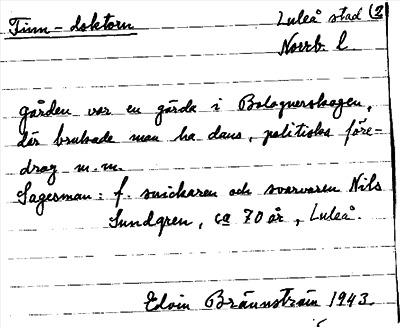 Finn-doktorn
Luleå stad (2)
Norrb. l.
gården var en gärda i Bolognerskogen,
där brukade man ha dans, politiska före-
drag m.m.
Sagesman: f. snickaren och svarvaren Nils
Sundgren, ca 70 år, Luleå.
Edvin Brännström 1943.